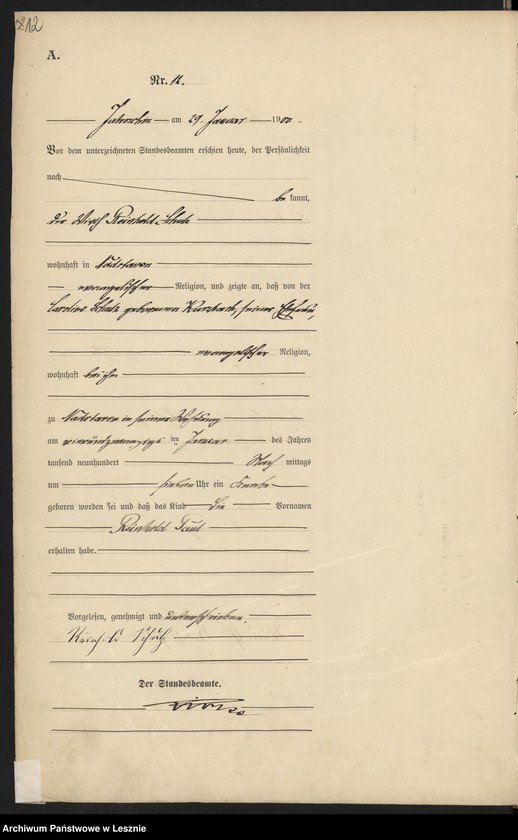 12
A.
Nr. 12.
am 29. Januar 1900.
Vor dem unterzeichneten Standesbeamten erschien heute, der Persönlichkeit
nach
be kannt,
der Wirth Reinhold Schulz
wohnhaft in
evangelischer Religion, und zeigte an, daß von der
Schulz geborenen seiner Ehefrau,
evangelischer Religion,
wohnhaft bei ihm
zu in seiner Wohnung
am vierundzwanzigs ten Januar des Jahres
tausend neunhundert Nach mittags
um sieben Uhr ein Knabe
geboren worden sei und daß das Kind die Vornamen
Reinhold Paul
erhalten habe.
Vorgelesen, genehmigt und unterschrieben.
Reinhold Schulz
Der Standesbeamte.
Archiwum Państwowe w Lesznie